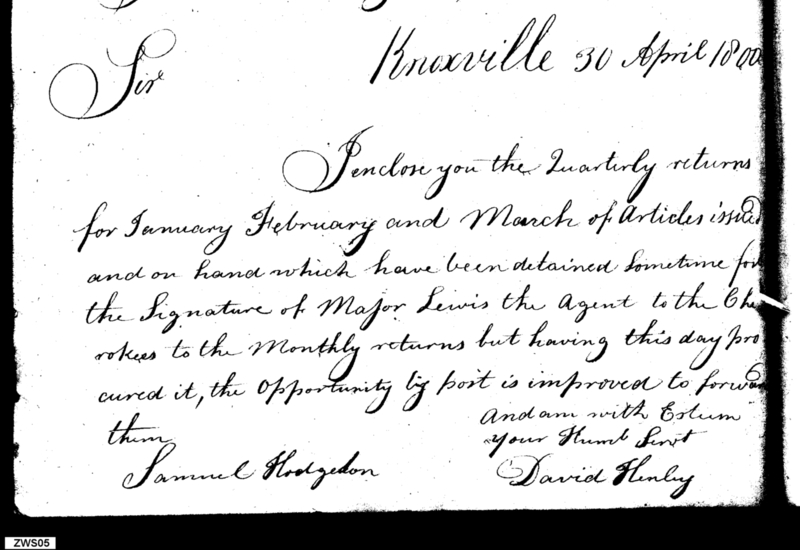 Knoxville 30 April 1800
Sir
I enclose you the Quarterly returns
for January February and March of Articles issued
and on hand which have been detained sometime for
the Signature of Major Lewis the Agent to the Che
rokees to the Monthly returns but having this day pro
cured it, the Opportunity by post is improved to forward
them
and am with Esteem
your Humb Servt
Samuel Hodgdon
David Henley
ZWS05